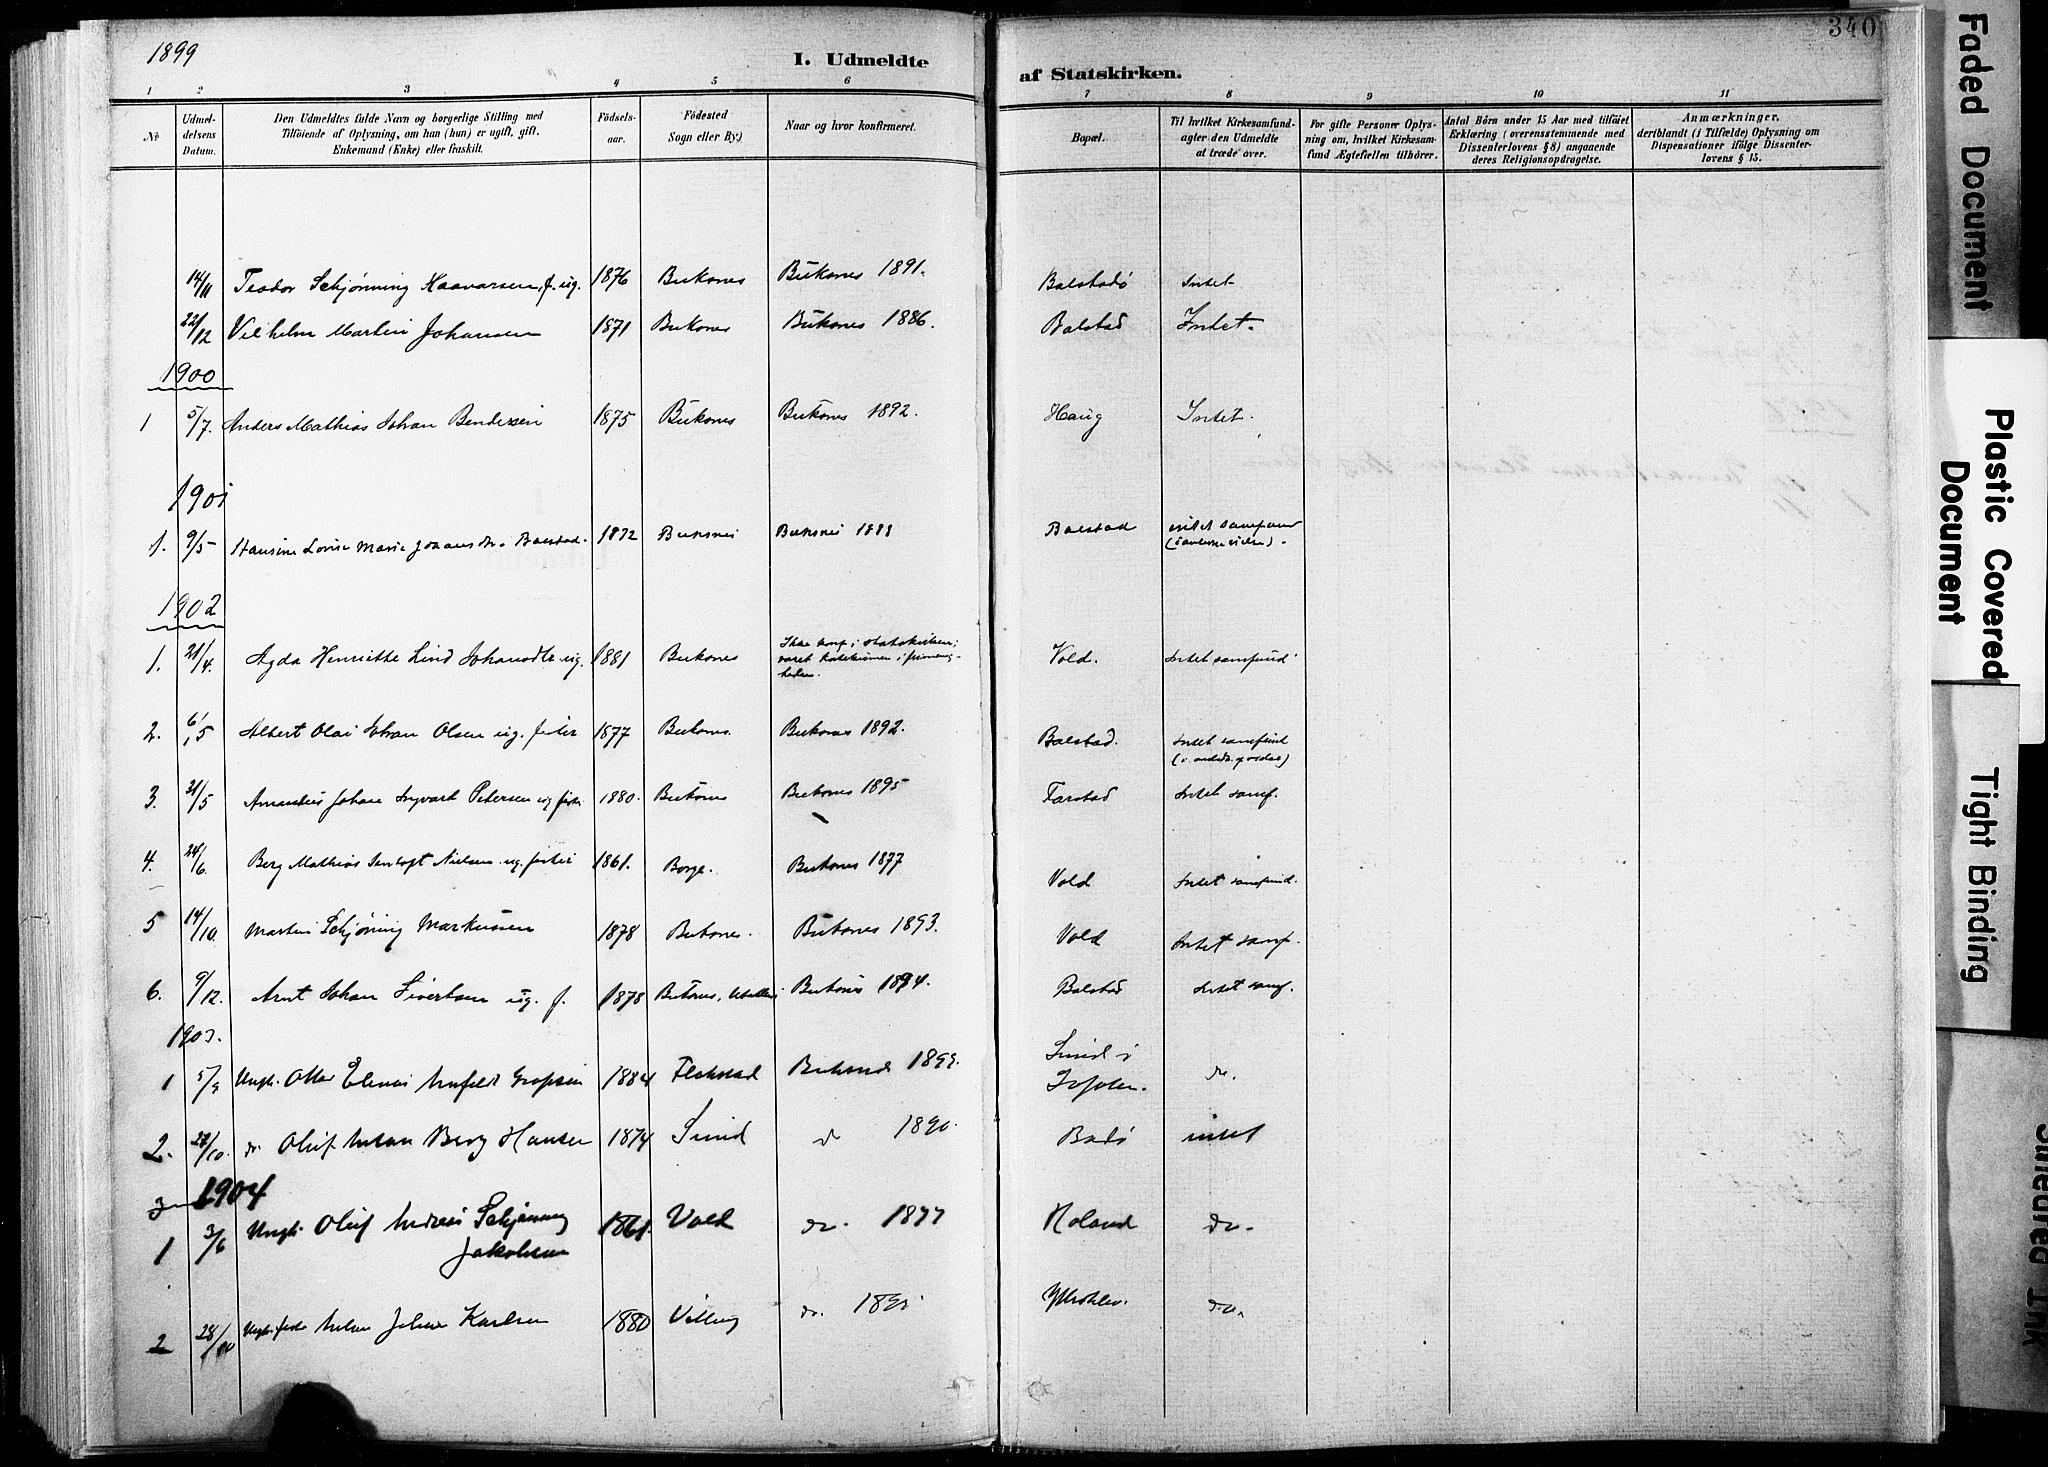 1899
I. Udmeldte
af Statskirken.
340
1 2 3 4 5 6 7 8 9 10 11
No
Udmeldelsens Datum.
Den Udmeldtes fulde Navn og borgerlige Stilling med
Tilföiende af Oplysning, om han (hun) er ugift, gift,
Enkemand (Enke) eller fraskilt.
Födselsaar.
Födested
Sogn eller By.)
Naar og hvor konfirmeret.
Bopæl.
Til hvilket Kirkesamfund
agter den Udmeldte
at træde over.
For gifte Personer Oplysning om, hvilket Kirkesamfund Ægtefællen tilhörer.
Antal Börn under 15 Aar med tilföiet
Erklæring (overensstemmende med
Dissenterlovens § 8) angaaende
deres Religionsopdragelse.
Anmærkninger,
deriblandt (i Tilfælde) Oplysning om
Dispensationer ifölge Dissenterlovens § 15.
14/11 Teodor Schjønning Haavarsen, f. ug. 1876 Buksnes Buksnes 1891. Balstadø Intet
22/12 Vilhelm Martin Johansen 1871 Buksnes Buksnes 1886. Balstad Intet.
1900
1 5/7. Anders Mathias Johan Bendixsen 1875 Buksnes Buksnes 1892. Haug Intet.
1901
1. 9/5 Hansine Lovise Marie Balstad. 1872 Buksnes Buksnes Balstad intet samfund
1902
1. 21/4. Agda Henriette Lind Johansdtr ug. 1881 Buksnes Ikke konf. i statskirken; Vold. Intet samfund
2. 6/5 Albert Olai Johan Olsen ug. fisker 1877 Buksnes. Buksnes 1892. Balstad. Intet samfund
3. 31/5 Amandus Johan Ingvart Petersen ug fisk. 1880. Buksnes Buksnes 1895 Farstad Intet samf.
4. 24/6. Berg Mathias Nielsen ug. fisker 1861. Borge. Buksnes 1877 Vold Intet samfund.
5 14/10. Martin Schjøning Markussen 1878 Buksnes. Buksnes 1893. Vold Intet samf.
6. 9/12. Arnt Johan Sivertsen ug. f. 1878 Buksnes, Buksnes 1894. Balstad Intet samf.
1903.
1 5/9 Ungk. Ottar 1884 Flakstad Buksnes 1899. Sund i
Lofoten. do.
2. 27/10. do Oluf Anton Berg Hansen 1874 Sund do 1890. Badø intet
3 1904
1 3/6 Ungk. Oluf Andreas Schjønning
Jakobsen 1861. Vold do. 1877 Noland do.
2 28/10 Ungk. Johan Karlsen 1880 do. do.
Faded Document
Plastic Covered Document
Tight Binding